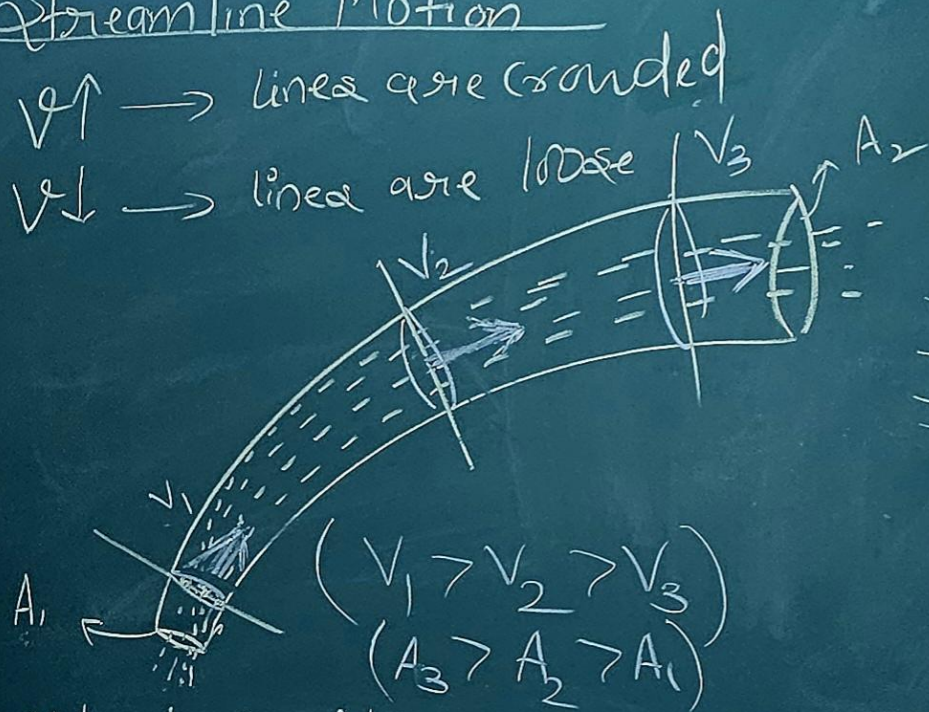 Streamline Motion
V↑ → lines are crowded
V↓ → lines are loose
V₃
A₂
V₂
V₁
A₁
(V₁ > V₂ > V₃)
(A₃ > A₂ > A₁)